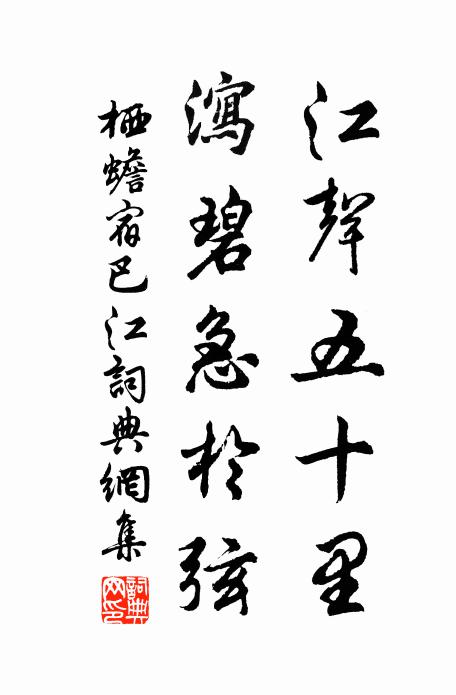 江聲五十里
瀉碧急於弦
栖蟾宿巴江詞典網集
詞典网印